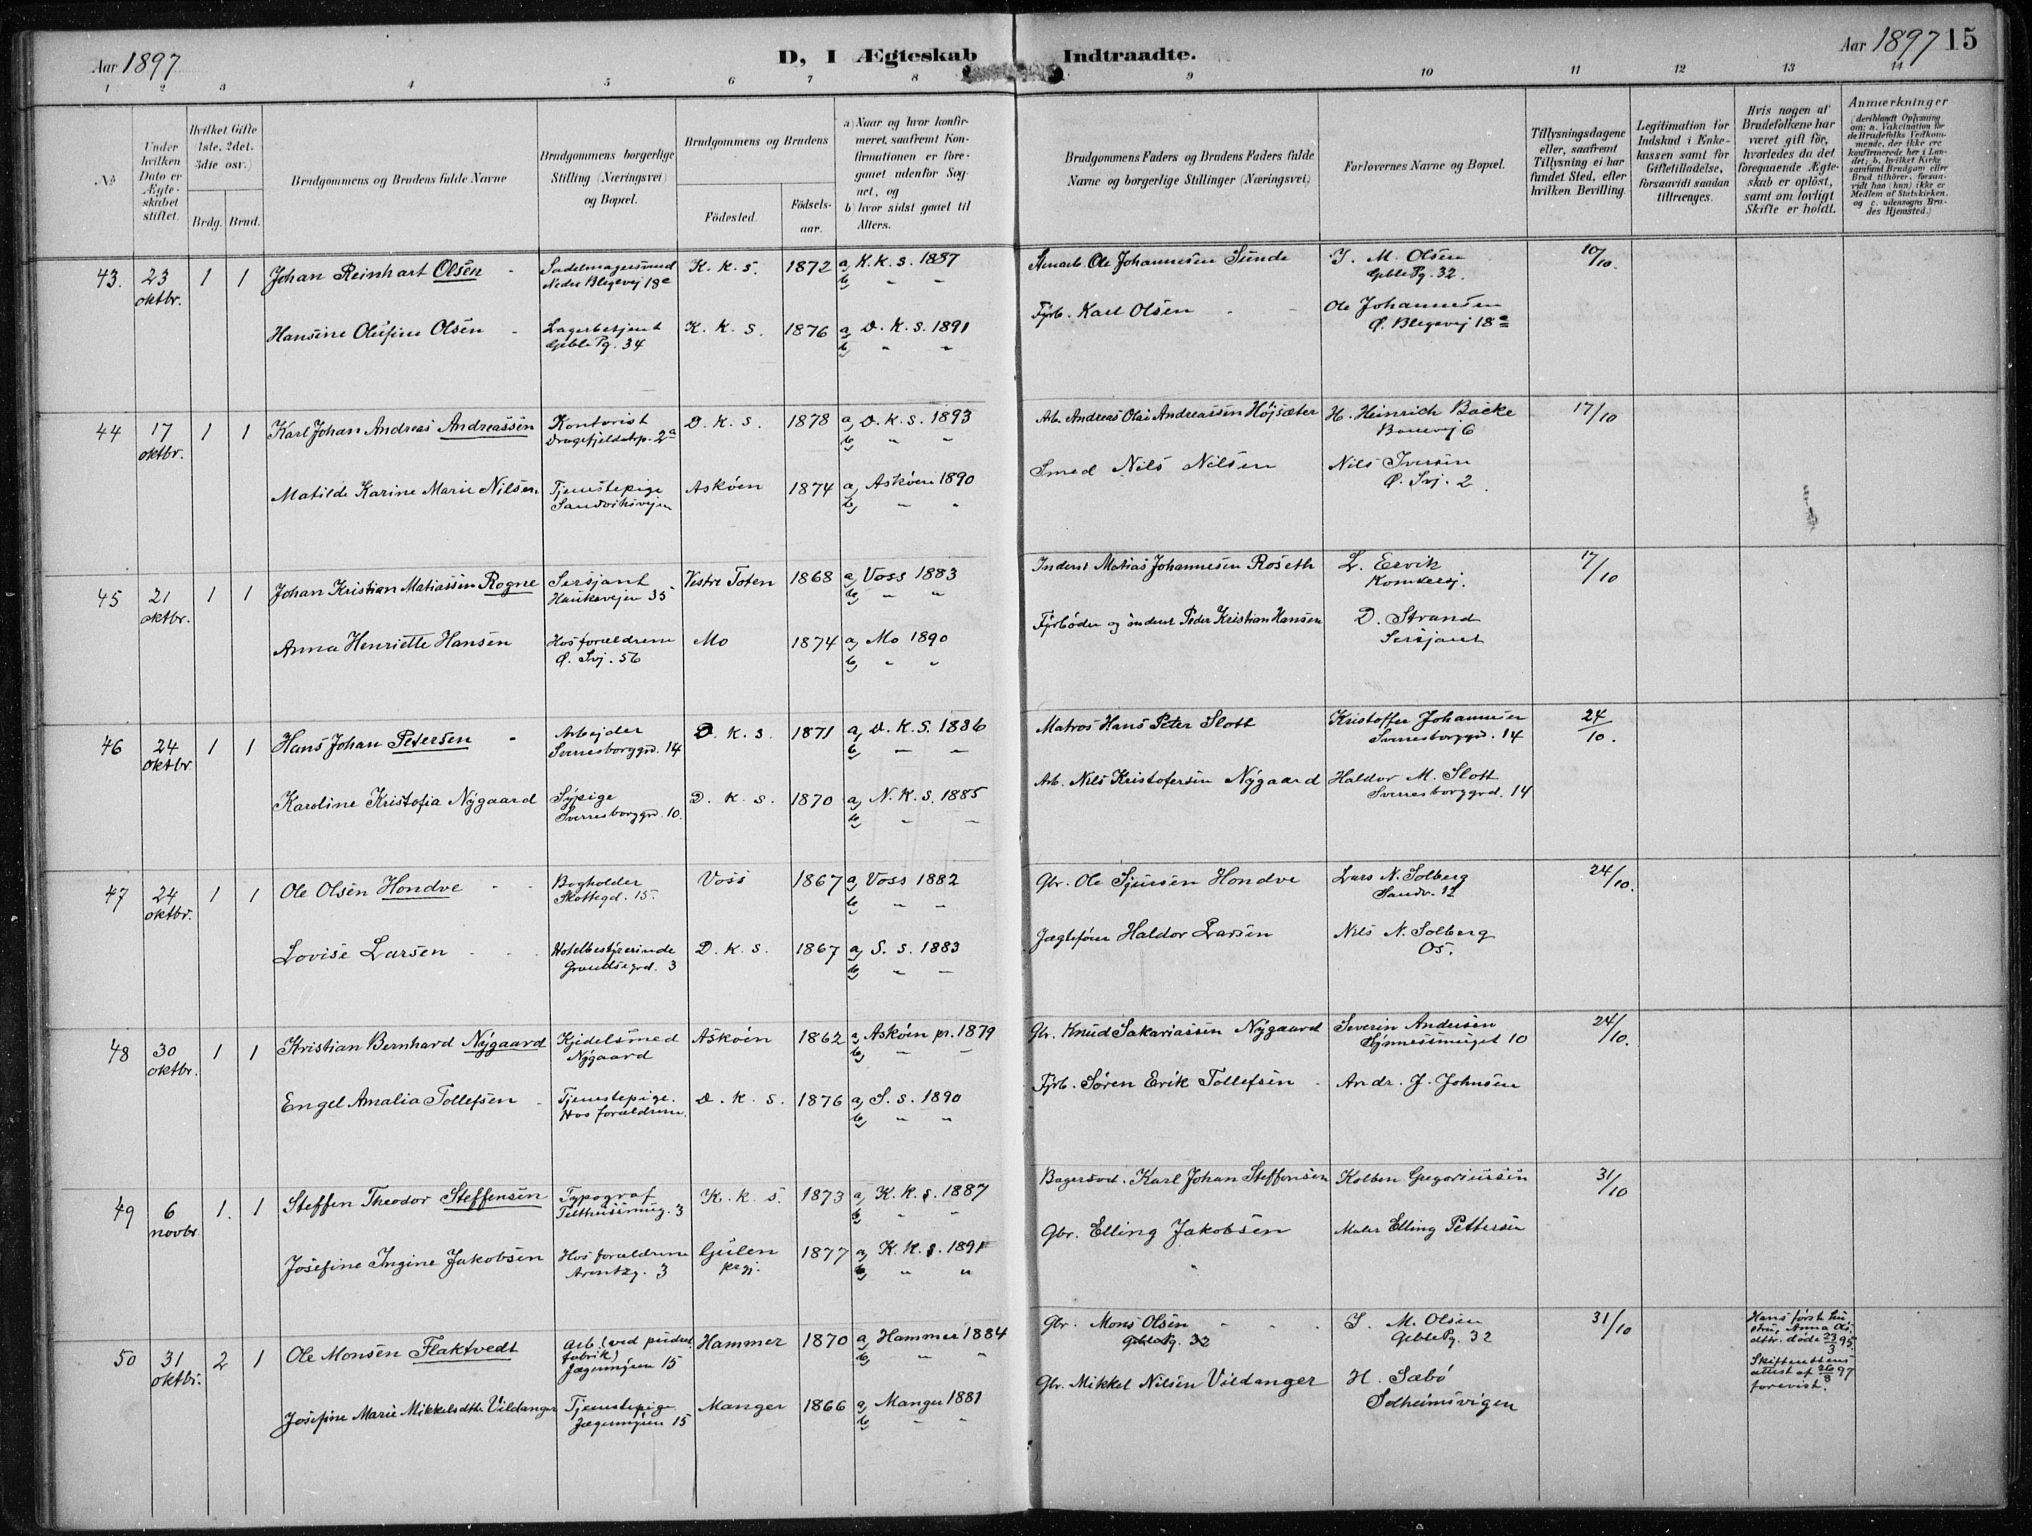 Aar 1897
D, I Ægteskab Indtraadte.
Aar 1897 15
1 2 3 4 5 6 7 8 9 10 11 12 13 14
№
Under hvilken Dato er Ægteskabet stiftet.
Hvilket Gifte 1ste, 2det, 3die osv.
Brdg. Brud.
Brudgommens og Brudens fulde Navne
Brudgommens borgerlige Stilling (Næringsvei) og Bopæl.
Brudgommens og Brudens
Födested. Födselsaar.
a) Naar og hvor konfirmeret, saafremt Konfirmationen er foregaaet udenfor Sognet, og
b) hvor sidst gaaet til Alters.
Brudgommens Faders og Brudens Faders fulde Navne og borgerlige Stillinger (Næringsvei)
Forlovernes Navne og Bopæl.
Tillysningsdagene eller, saafremt Tillysning ei har fundet Sted, efter hvilken Bevilling.
Legitimation for Indskud i Enkekassen samt for Giftetilladelse, forsaavidt saadan tiltrænges.
Hvis nogen af Brudefolkene har været gift för, hvorledes da det foregaaende Ægteskab er oplöst, samt om lovligt Skifte er holdt.
Anmerkninger (deriblandt Oplysning om: a. Vakcination for de Brudefolks Vedkommende, der ikke ere konfirmerede her i Landet; b. hvilket Kirkesamfund Brudgom eller Brud tilhörer, forsaavidt han (hun) ikke er Medlem af Statskirken, og c. udensogns Brudes Hjemsted.)
43. 23 oktbr. 1 1 Johan Reinhart Olsen Sadelmagersvend K. k. s. 1872 a, K. k. s. 1887 Ole Johannesen Sunde J. M. Olsen 10/10.
Nedre Blegevej 18c b, " " Geble Pg. 32.
Hansine Olufine Olsen Lagerbetjent K. k. s. 1876 a, D. K. s. 1891 Fyrb. Karl Olsen Ole Johannesen
Geble Pg. 34 b, " " Ø. Blegevej 18
44 17 oktbr. 1 1 Karl Johan Andreas Andreassen Kontorist D. k. s. 1878 a, D. K. s. 1893 Arb. Andreas Olai Andreassen Højsæter H. Heinrich Backe 17/10
2a b, " " 6
Matilde Karine Marie Nilsen Tjenestepige Askøen 1874 a, Askøen 1890 Smed Nils Nilsen Nils Iversen
Sandviksvejen b, " " Ø. Svj. 2.
45 21 oktbr. 1 1 Johan Kristian Matiassen Rogne Sersjant Vestre Toten 1868 a, Voss 1883 Inderst Matias Johannesen Roseth L. Eervik 17/10
Haukevejen 35 b, " "
Anna Henriette Hansen Hos forældrene Mo 1874 a, Mo 1890 Fyrbøder og inderst Peder Kristian Hansen D. Strand
Ø. Svj. 56 b, " " Sersjant
46 24 oktbr 1 1 Hans Johan Petersen Arbejder D. k. s. 1871 a, D. K. S. 1886 Matros Hans Peter Slott Kristoffer Johannesen 24/10.
Sverresborggd. 14 b, Sverresborggd. 14
Karoline Kristofia Nygaard Sypige D. k. s. 1870 a, N. K. s. 1885 Arb. Nils Kristofersen Nygaard Haldor M. Slott
Sverresborggd. 10 b, Sverresborggrd. 14
47 24 oktbr. 1 1 Ole Olsen Hondve Bogholder Voss 1867 a, Voss 1882 Gbr. Ole Sjursen Hondve Lars N. Solberg 24/10.
Skottegd. 15. b, " " Sandv. 12
Lovise Larsen Hotelbestyrerinde D. k. s. 1867 a, S. s. 1883 Jægtefører Haldor Larsen Nils N. Solberg
3 b, Os.
48 30 oktbr. 1 1 Kristian Bernhard Nygaard Kjedelsmed Askøen 1862 a, Askøen pr. 1879 Gbr. Knud Sakariassen Nygaard Severin Andersen 24/10.
Nygaard b, 10
Engel Amalia Tollefsen Tjenestepige. D. k. s. 1876 a, S. s. 1890 Fyrb. Søren Erik Tollefsen Andr. J. Johnsen
Hos forældrene b, " "
49 6 novbr 1. 1 Steffen Theodor Steffensen Typograf K. k. s. 1873 a, K. K. s. 1887 Bagersvd. Karl Johan Steffensen Kolben Gregoriussen 31/10
3 b, " "
Josefine Ingine Jakobsen Hos forældrene Gulen 1877 a, K. K. s. 1891 Gbr. Elling Jakobsen Maler Elling Pettersen
3 prgj. b, " "
50 31 oktbr. 2 1 Ole Monsen Flaktvedt Arb. (ved pudretfabrik) Hammer 1870 a, Hammer 1884 Gbr. Mons Olsen J. M. Olsen 31/10 Hans først hustru, Anna Olsdtr. døde 23/3 95.
Jægermyren 15 b, " " Geble Pg. 32 Skifterettens attest af 26/8 97 forevist.
Josefine Marie Mikkelsdtr Vildanger Tjenestepige Manger 1866 a, Manger 1881 Gbr. Mikkel Nilsen Vildanger H. Sæbø
Jægermyren 15 b, " " Solheimsvigen